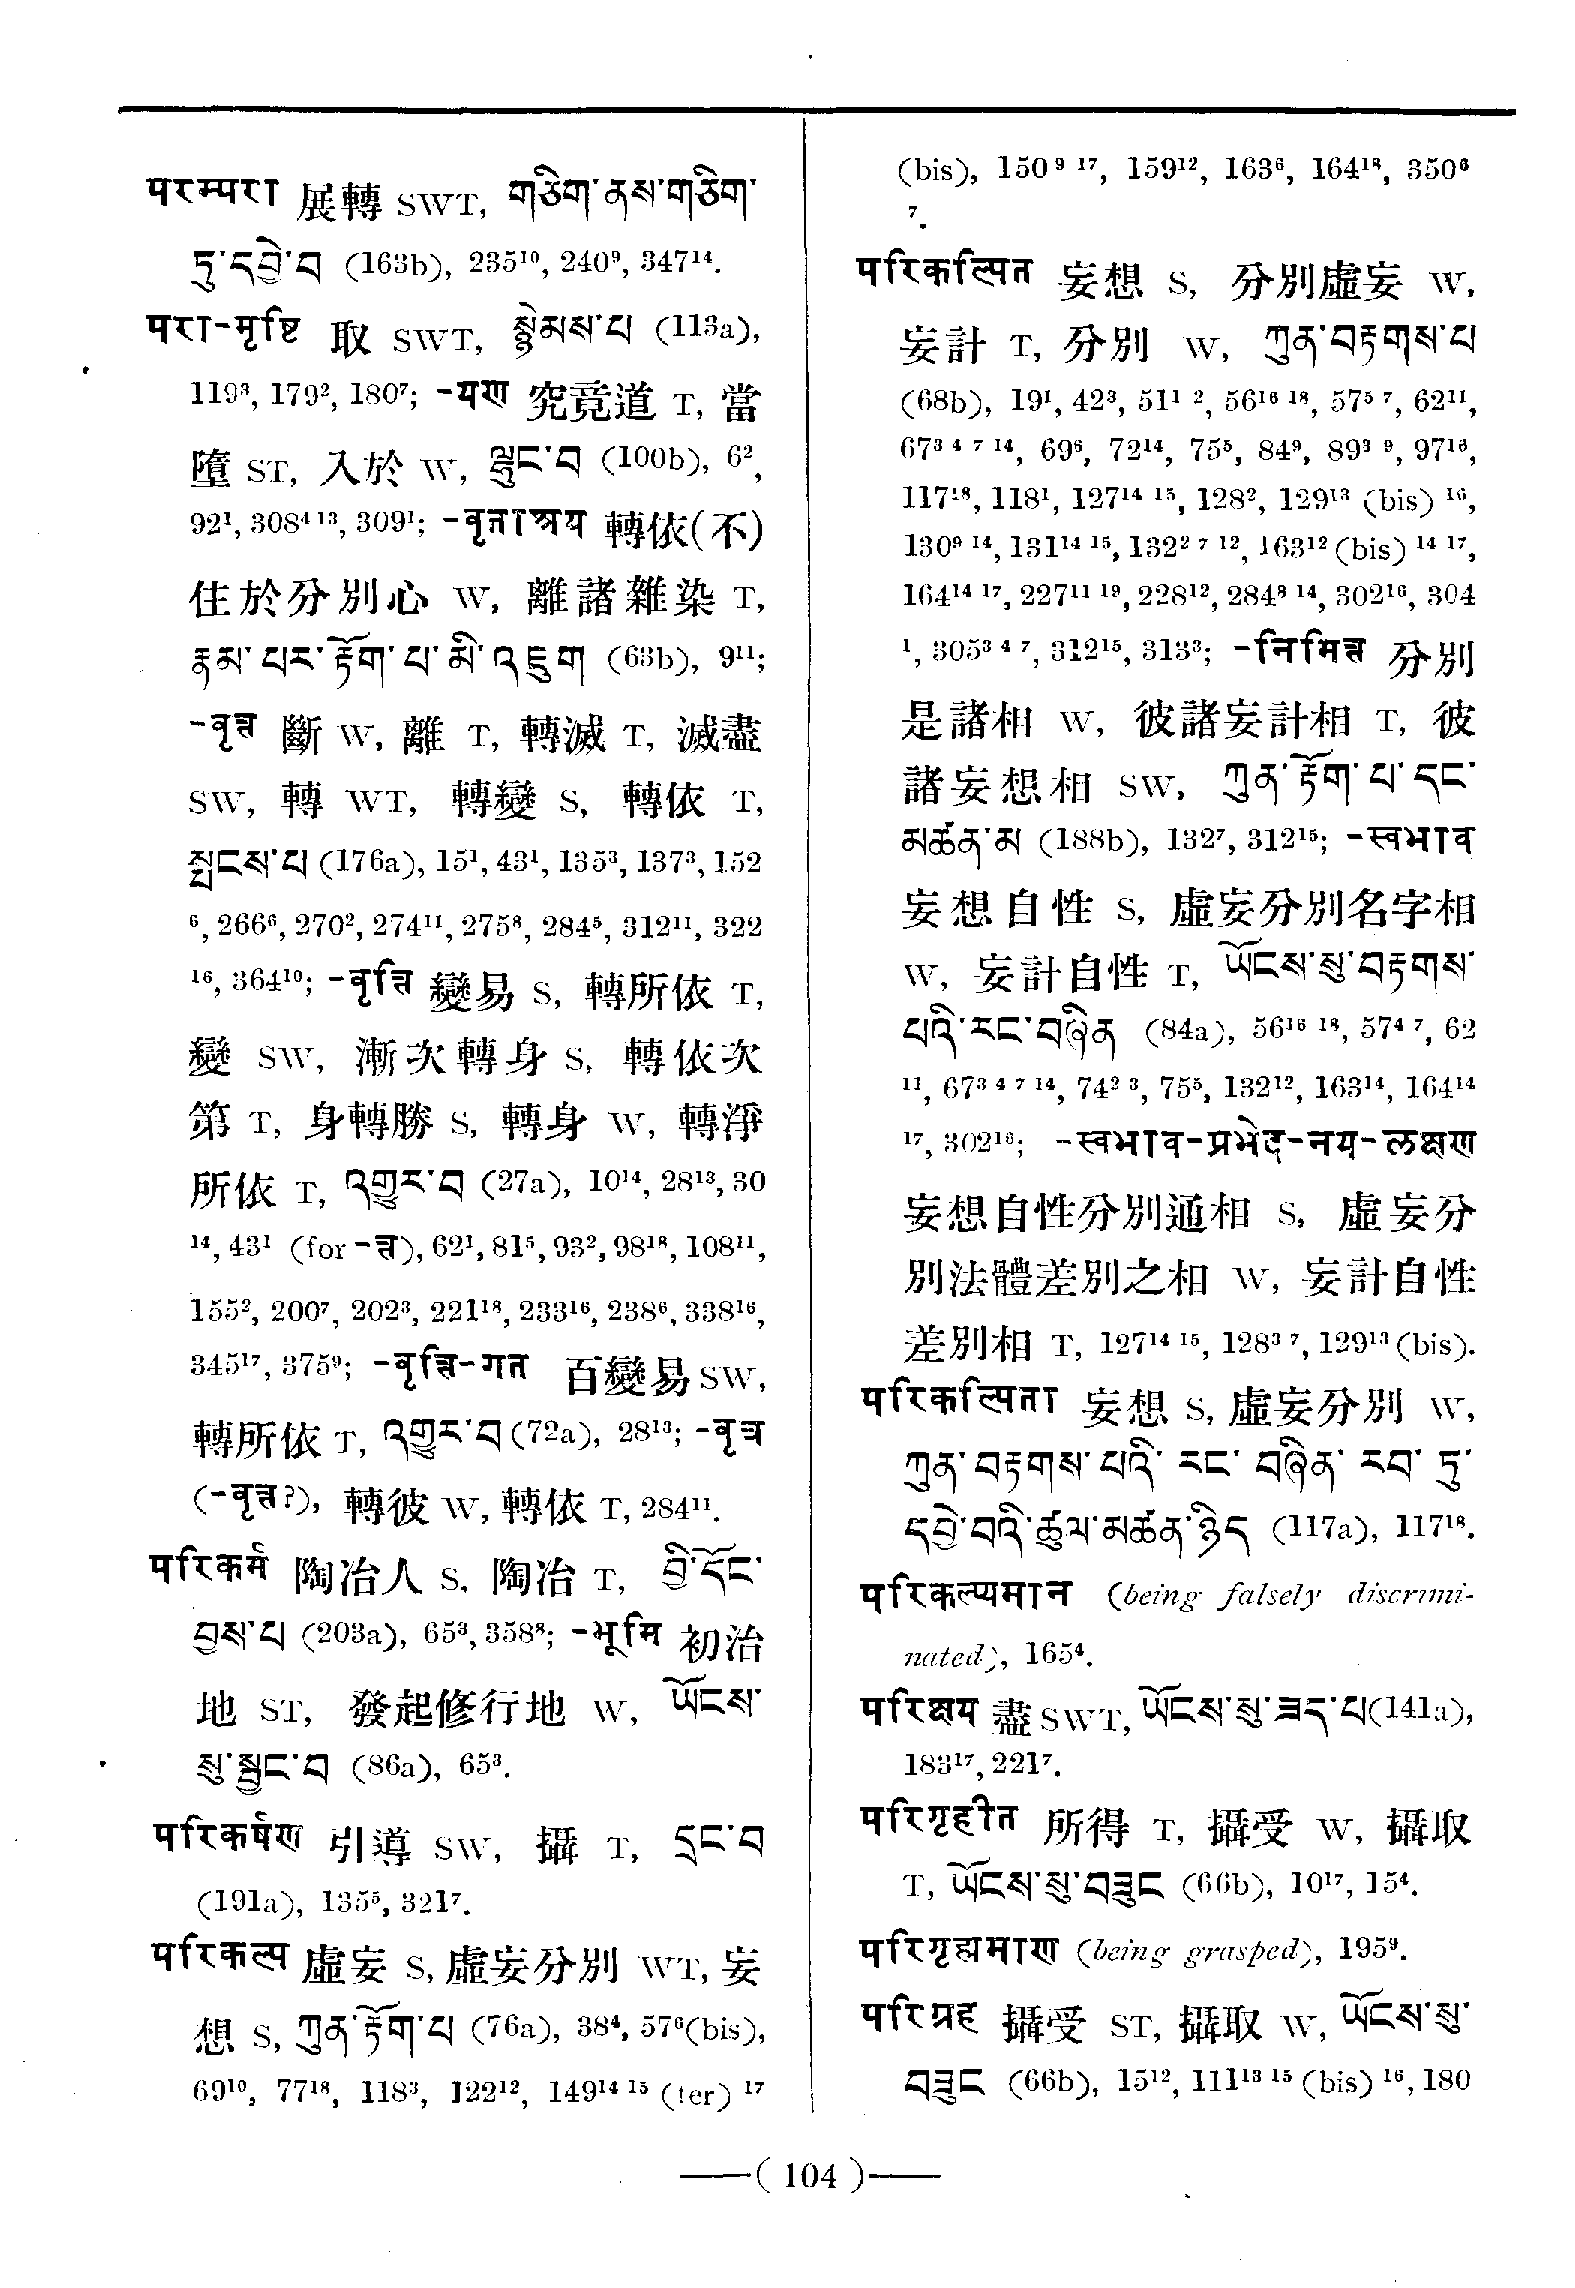 परम्परा 展轉 SWT, གཅིག་ནས་གཅིག་
ཏུ་དབྲེ་བ (163b), 235¹⁰, 240⁹, 347¹⁴.
परा-मृष्टि 取 SWT, སྙེམས་པ (113a),
119³, 179², 180⁷; -यण 究竟道 T, 當
墮 ST, 入於 W, ལྷུང་བ (100b), 6²,
92¹, 308⁴ ¹³, 309¹; -वृत्ताश्रय 轉依(不)
住於分別心 W, 離諸雜染 T,
རྣམ་པར་རྟོག་པ་མི་འཇུག (63b), 9¹¹;
-वृत्त 斷 W, 離 T, 轉滅 T, 滅盡
SW, 轉 WT, 轉變 S, 轉依 T,
སྤངས་པ (176a), 15¹, 43¹, 135³, 137³, 152
⁶, 266⁶, 270², 274¹¹, 275⁸, 284⁵, 312¹¹, 322
¹⁶, 364¹⁰; -वृत्ति 變易 S, 轉所依 T,
變 SW, 漸次轉身 S, 轉依次
第 T, 身轉勝 S, 轉身 W, 轉淨
所依 T, འགྱུར་བ (27a), 10¹⁴, 28¹³, 30
¹⁴, 43¹ (for -त्त), 62¹, 81⁵, 93², 98¹⁸, 108¹¹,
155², 200⁷, 202³, 221¹⁸, 233¹⁶, 238⁶, 338¹⁶,
345¹⁷, 375⁹; -वृत्ति-गत 百變易 SW,
轉所依 T, འགྱུར་བ (72a), 28¹³; -वृत्र
(-वृत्त?), 轉彼 W, 轉依 T, 284¹¹.
परिकर्म 陶冶人 S, 陶冶 T, བྱི་དོང་
བྱས་པ (203a), 65³, 358⁸; -भूमि 初治
地 ST, 發起修行地 W, ཡོངས་
སུ་སྦྱང་བ (86a), 65³.
परिकर्षण 引導 SW, 攝 T, དྲང་བ
(191a), 135⁵, 321⁷.
परिकल्प 虛妄 S, 虛妄分別 WT, 妄
想 S, ཀུན་རྟོག་པ (76a), 38⁴, 57⁶(bis),
69¹⁰, 77¹⁸, 118³, 122¹², 149¹⁴ ¹⁵ (ter) ¹⁷
(bis), 150⁹ ¹⁷, 159¹², 163⁶, 164¹⁸, 350⁶
⁷.
परिकल्पित 妄想 S, 分別虛妄 W,
妄計 T, 分別 W, ཀུན་བརྟགས་པ
(68b), 19¹, 42³, 51¹ ², 56¹⁶ ¹⁸, 57⁵ ⁷, 62¹¹,
67³ ⁴ ⁷ ¹⁴, 69⁶, 72¹⁴, 75⁵, 84⁹, 89³ ⁹, 97¹⁶,
117¹⁸, 118¹, 127¹⁴ ¹⁵, 128², 129¹³ (bis) ¹⁶,
130⁹ ¹⁴, 131¹⁴ ¹⁵, 132² ⁷ ¹², 163¹² (bis) ¹⁴ ¹⁷,
164¹⁴ ¹⁷, 227¹¹ ¹⁹, 228¹², 284⁸ ¹⁴, 302¹⁶, 304
¹, 305³ ⁴ ⁷, 312¹⁵, 313³; -निमित्त 分別
是諸相 W, 彼諸妄計相 T, 彼
諸妄想相 SW, ཀུན་རྟོག་པ་དང་
མཚན་མ (188b), 132⁷, 312¹⁵; -स्वभाव
妄想自性 S, 虛妄分別名字相
W, 妄計自性 T, ཡོངས་སུ་བརྟགས་
པའི་རང་བཞིན (84a), 56¹⁶ ¹⁸, 57⁴ ⁷, 62
¹¹, 67³ ⁴ ⁷ ¹⁴, 74² ³, 75⁵, 132¹², 163¹⁴, 164¹⁴
¹⁷, 302¹⁶; -स्वभाव-प्रभेद-नय-लक्षण
妄想自性分別通相 S, 虛妄分
別法體差別之相 W, 妄計自性
差別相 T, 127¹⁴ ¹⁵, 128³ ⁷, 129¹³ (bis).
परिकल्पिता 妄想 S, 虛妄分別 W,
ཀུན་བརྟགས་པའི་རང་བཞིན་རབ་ཏུ་
དབྱེ་བའི་ཚུལ་མཚན་ཉིད (117a), 117¹⁸.
परिकल्प्यमान (being falsely discrimi-
nated), 165⁴.
परिक्षय 盡 SWT, ཡོངས་སུ་ཟད་པ (141a),
183¹⁷, 221⁷.
परिगृहीत 所得 T, 攝受 W, 攝取
T, ཡོངས་སུ་བཟུང (66b), 10¹⁷, 15⁴.
परिगृह्यमाण (being grasped), 195⁹.
परिग्रह 攝受 ST, 攝取 W, ཡོངས་སུ་
བཟུང (66b), 15¹², 111¹³ ¹⁵ (bis) ¹⁶, 180
——( 104 )——